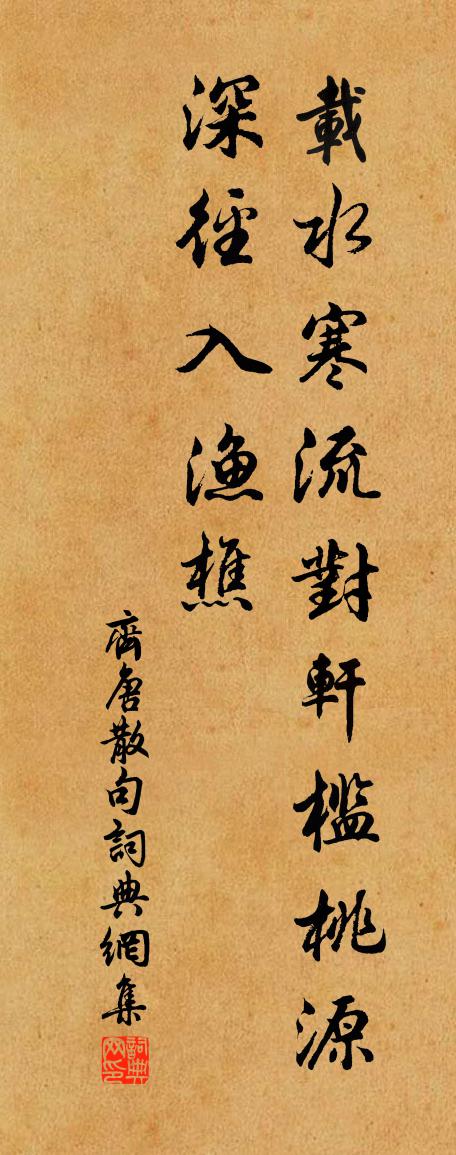 載水寒流對軒檻桃源
深徑入漁樵
齊唐散句詞典網集
詞典网印